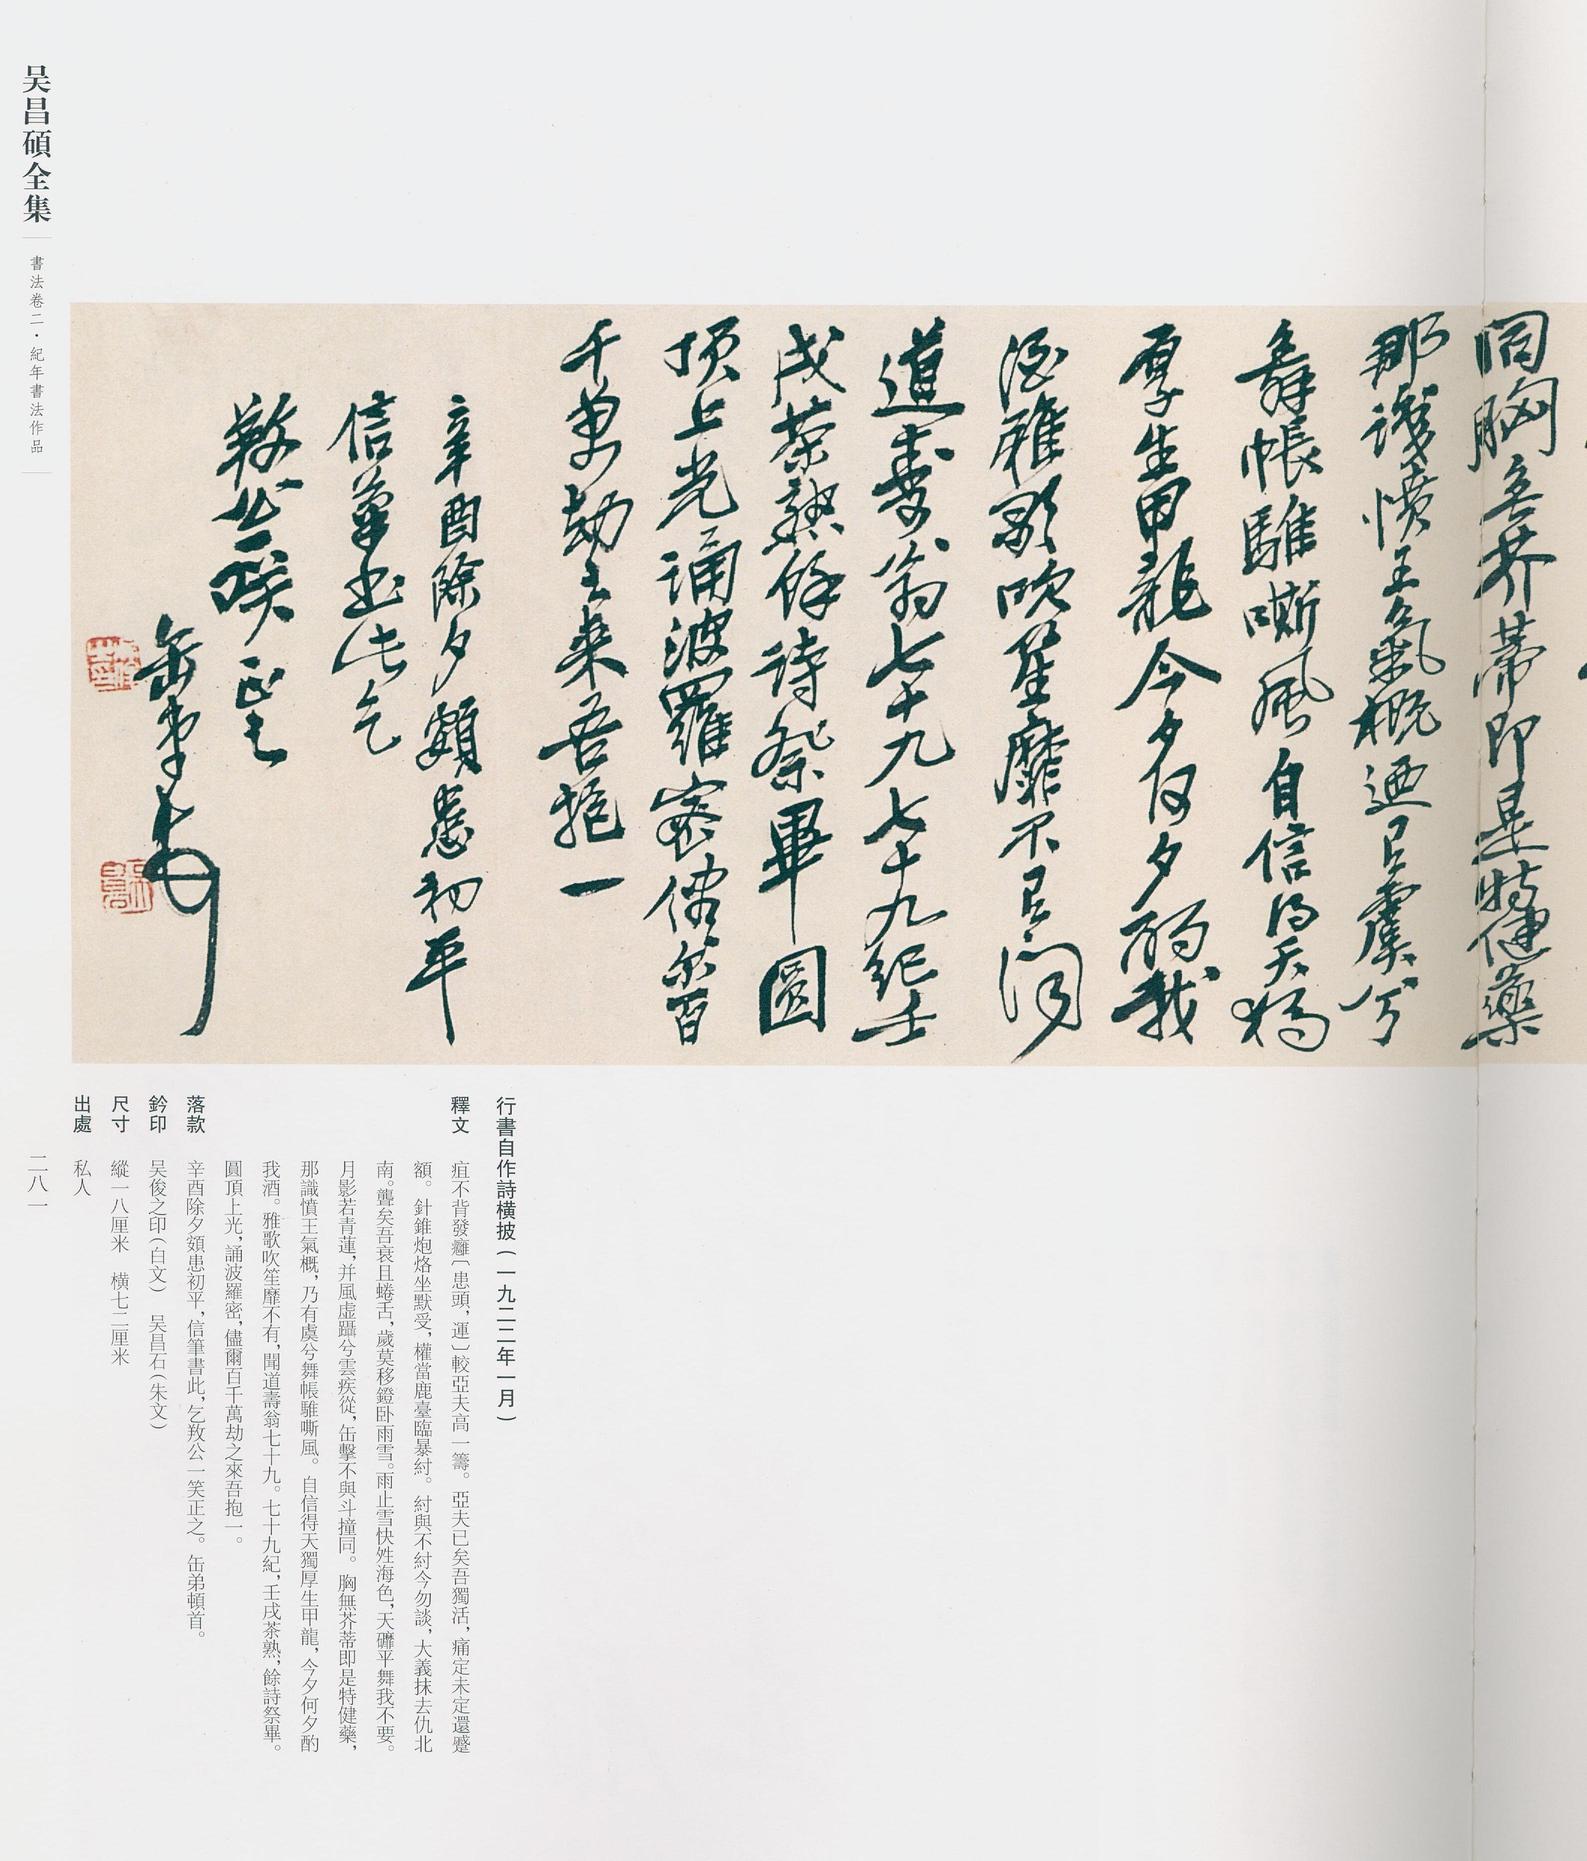 同胸無芥蒂即是特健藥
那識憤王氣概迺有虞兮
舞帳騅嘶風自信得天獨
厚生甲龍今夕何夕酌我
酒雅歌吹笙靡不有聞
道壽翁七十九七十九紀壬
戌茶熟餘詩祭畢圓
頂上光誦波羅密儘爾百
千萬劫之來吾抱一
辛酉除夕頞患初平
信筆書此乞
敄公一笑正之
缶弟頓首
行書自作詩橫披(一九二二年一月)
釋文 疽不背發癰〔患頭,運〕較亞夫高一籌。亞夫已矣吾獨活,痛定未定還蹙
額。針錐炮烙坐默受,權當鹿臺臨暴紂。紂與不紂今勿談,大義抹去仇北
南。聾矣吾衰且蜷舌,歲莫移鐙卧雨雪。雨止雪快姓海色,天礳平舞我不要。
月影若青蓮,并風虛躡兮雲疾從,缶擊不與斗撞同。胸無芥蒂即是特健藥,
那識憤王氣概,乃有虞兮舞帳騅嘶風。自信得天獨厚生甲龍,今夕何夕酌
我酒。雅歌吹笙靡不有,聞道壽翁七十九。七十九紀,壬戌茶熟,餘詩祭畢。
圓頂上光,誦波羅密,儘爾百千萬劫之來吾抱一。
落款 辛酉除夕頞患初平,信筆書此,乞敄公一笑正之。缶弟頓首。
鈐印 吴俊之印(白文) 吴昌石(朱文)
尺寸 縱一八厘米 橫七二厘米
出處 私人
吴昌碩全集
書法卷二·紀年書法作品
二八一